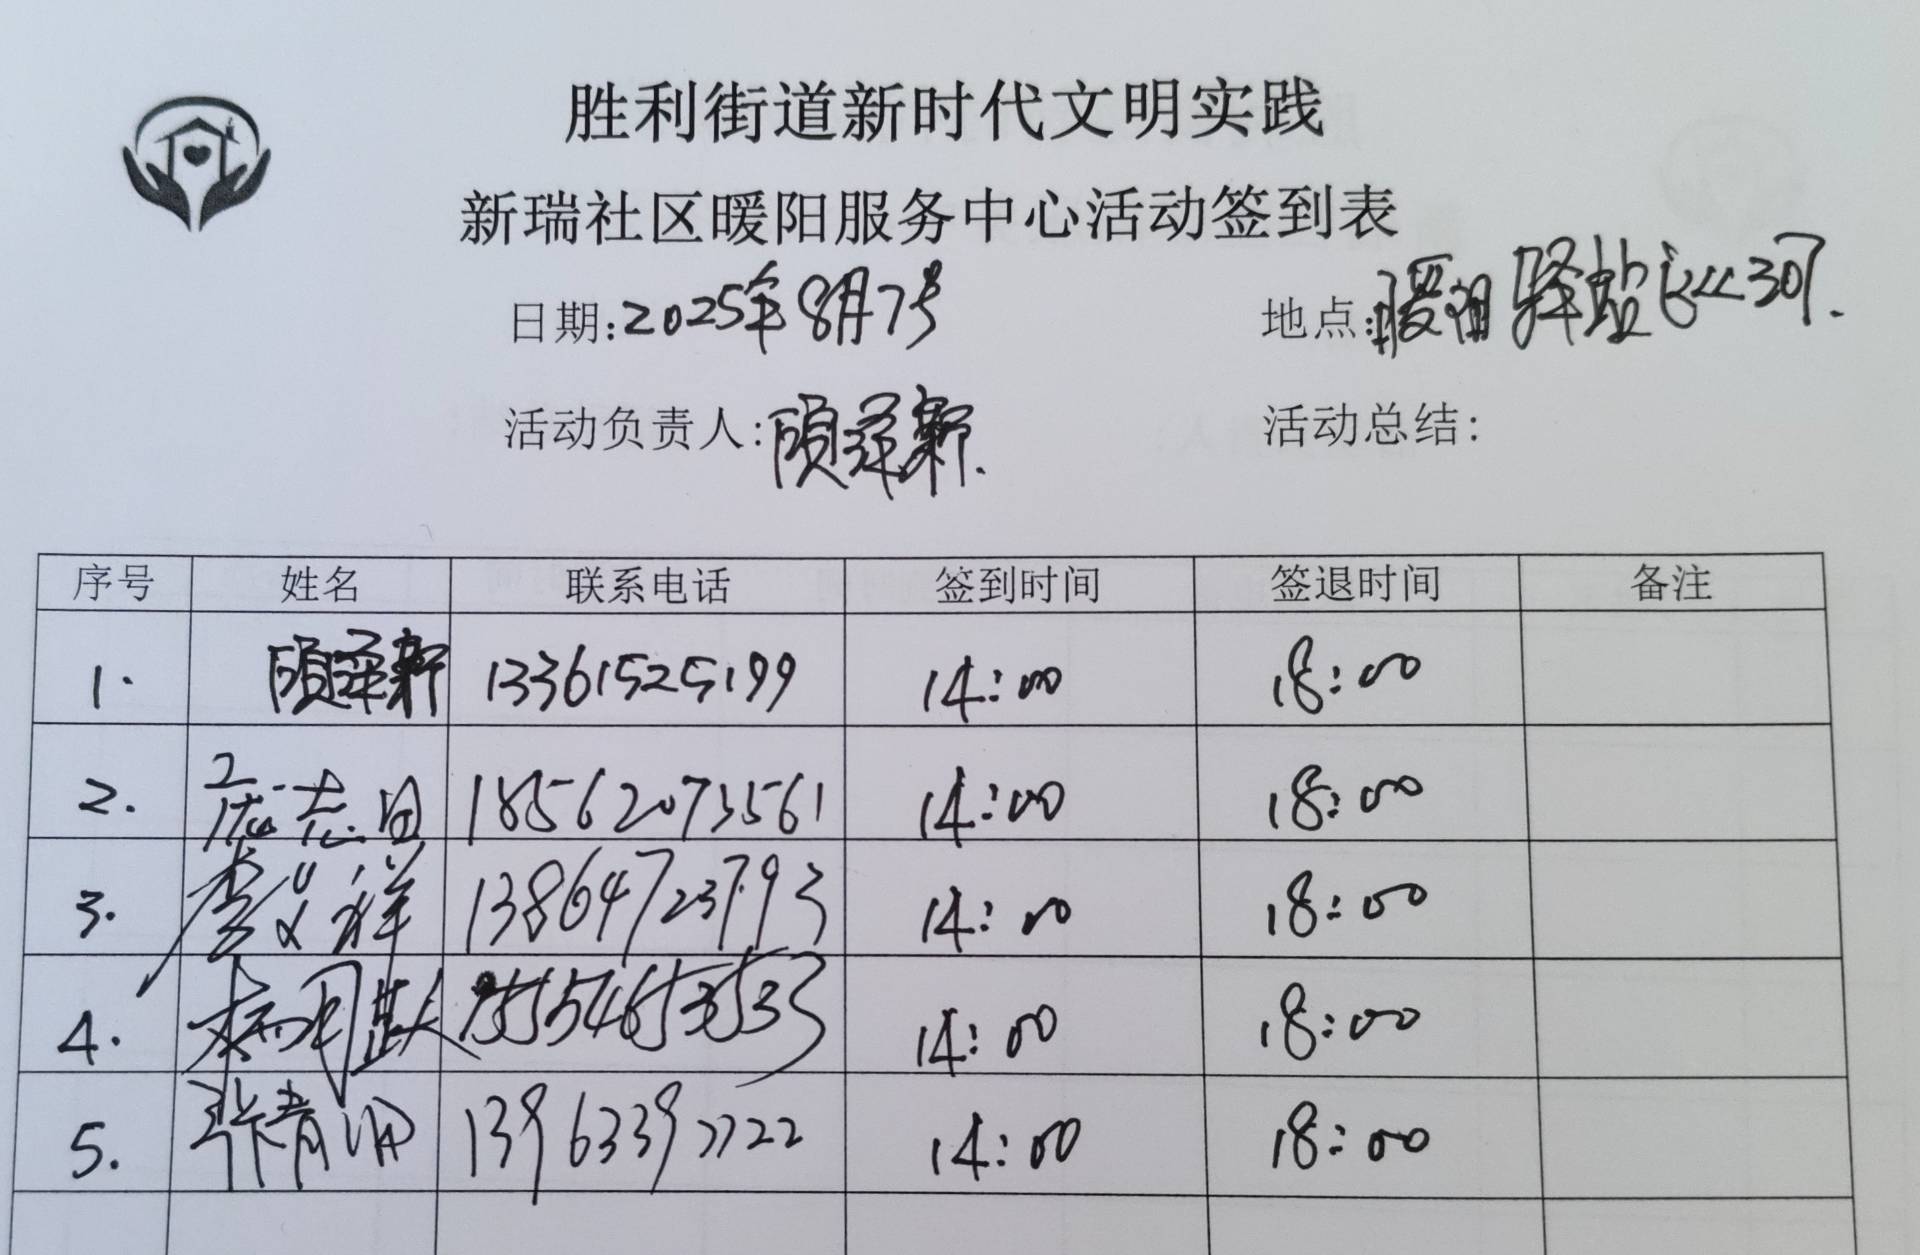 胜利街道新时代文明实践
新瑞社区暖阳服务中心活动签到表
日期:2025年8月7号 地点:暖阳驿站
活动负责人: 活动总结:
序号 姓名 联系电话 签到时间 签退时间 备注
1. 13361525199 14:00 18:00
2. 18562073561 14:00 18:00
3. 李义祥 13864723793 14:00 18:00
4. 14:00 18:00
5. 13963392722 14:00 18:00